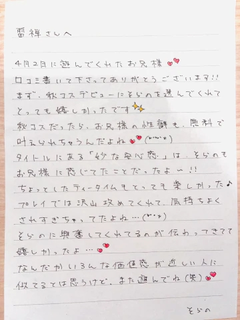 習練さんへ
4月2日に遊んでくれたお兄様
口コミ書いて下さってありがとうございます!!
まず、私コスデビューにそらのを選んでくれて
とっても嬉しかったです
私コスだったら、お兄様の性癖も、無料で
叶えられちゃうんだよね
タイトルにある「妙な安心感」は、そらのも
お兄様に感じてたことだったよー!!
ちょっとしたティータイムもとっても楽しかった♪
プレイでは沢山攻めてくれて、気持ちよく
されすぎちゃってたよね…
そらのに興奮してくれてるのが伝わってきて
嬉しかったよ…
なんだかいろんな価値感が近しい人に
似てるとは思うけど、また遊んでね(笑)
そらの